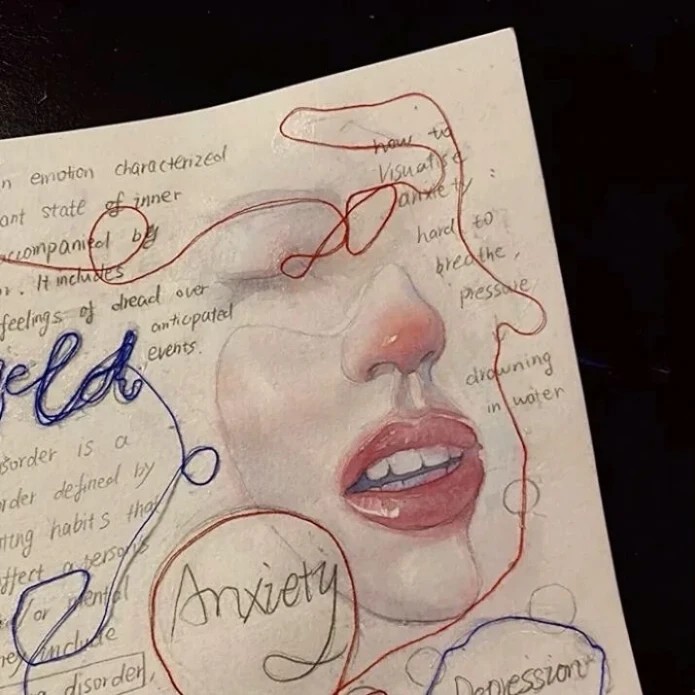 n emotion characterized
ant state of inner
accompanied by
r. It includes
feelings of dread over
anticipated
events.
eld
order is a
order defined by
ting habits that
affect a person's
/or mental
include
disorder,
how to
visualise
anxiety :
hard to
breathe,
pressure
drowning
in water
Anxiety
Depression